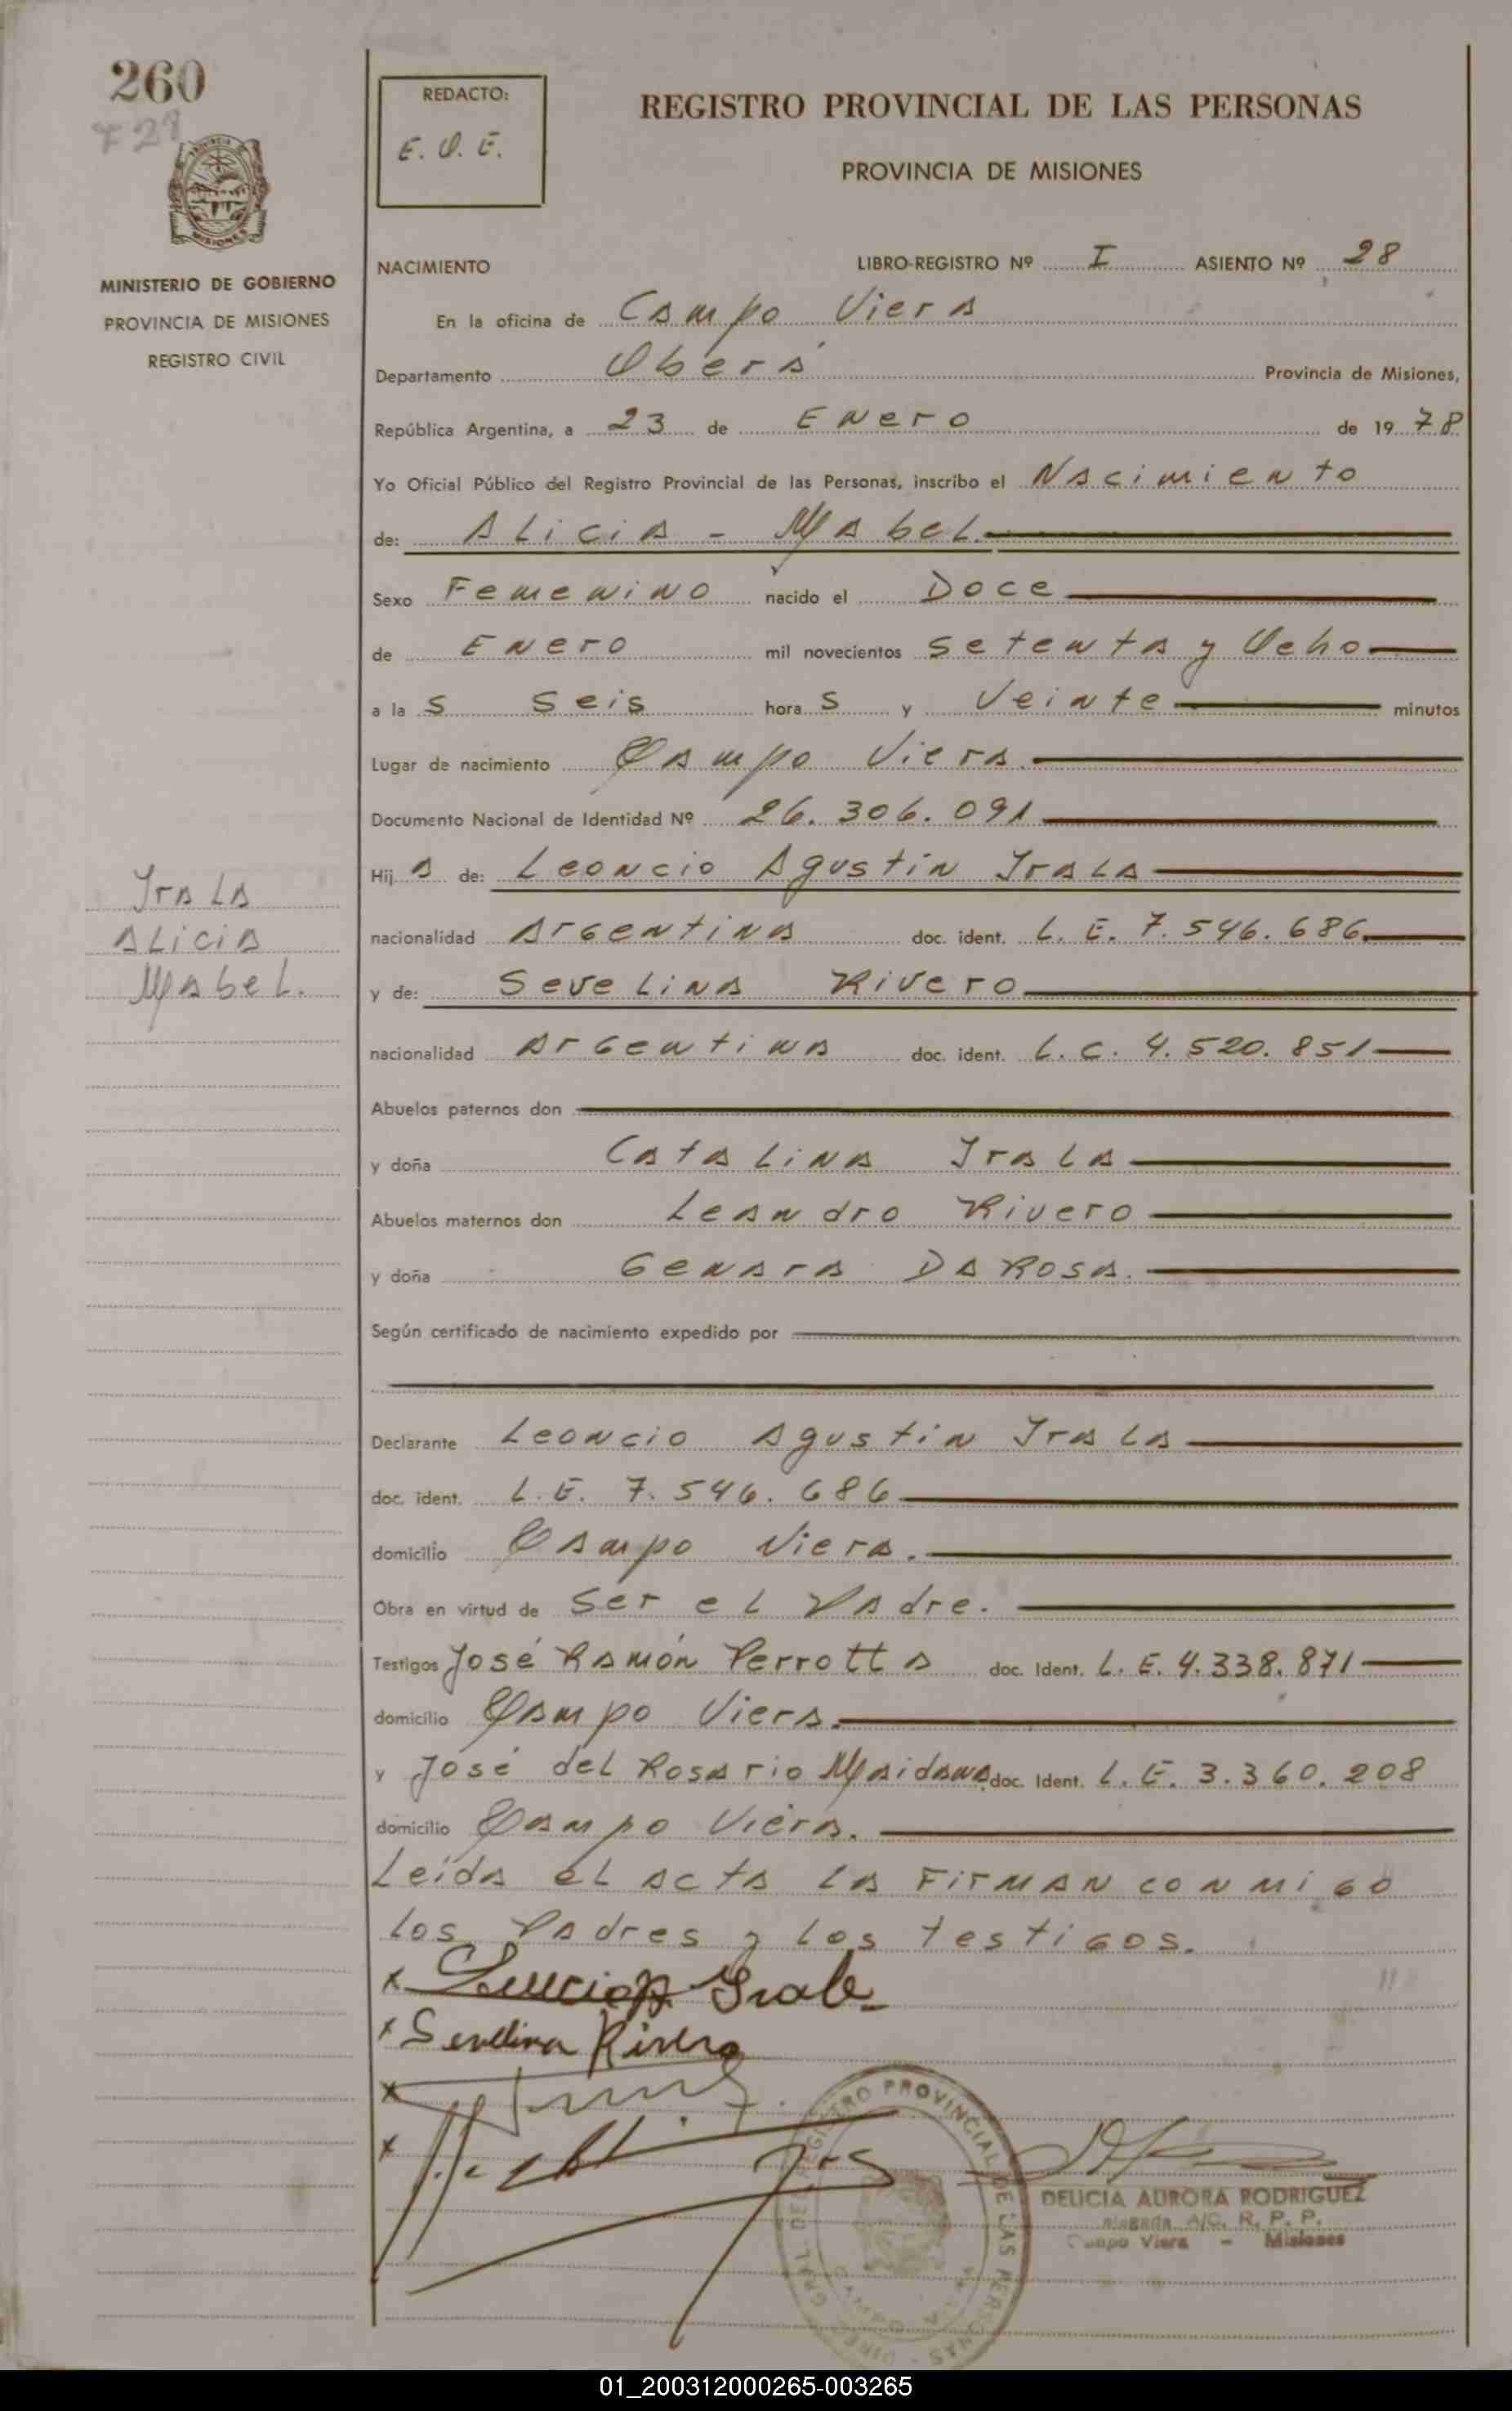 260
728
REDACTO:
E. O. E.
REGISTRO PROVINCIAL DE LAS PERSONAS
PROVINCIA DE MISIONES
MISIONES
MINISTERIO DE GOBIERNO
PROVINCIA DE MISIONES
REGISTRO CIVIL
NACIMIENTO LIBRO-REGISTRO Nº I ASIENTO Nº 28
En la oficina de Campo Viera
Departamento Oberá Provincia de Misiones,
República Argentina, a 23 de Enero de 1978
Yo Oficial Público del Registro Provincial de las Personas, inscribo el Nacimiento
de: Alicia - Mabel
Sexo Femenino nacido el Doce
de Enero mil novecientos setenta y Ocho
a las Seis horas y Veinte minutos
Lugar de nacimiento Campo Viera.
Documento Nacional de Identidad Nº 26.306.091
Hija de: Leoncio Agustín Irala
nacionalidad Argentina doc. ident. L. E. 7.546.686
y de: Sevelina Rivero
nacionalidad Argentina doc. ident. L. C. 4.520.851
Abuelos paternos don
y doña Catalina Irala
Abuelos maternos don Leandro Rivero
y doña Genara Da Rosa.
Según certificado de nacimiento expedido por
Declarante Leoncio Agustin Irala
doc. ident. L. E. 7.546.686
domicilio Campo Viera.
Obra en virtud de ser el Padre.
Testigos José Ramón Perrotta doc. Ident. L. E. 4.338.871
domicilio Campo Viera.
y José del Rosario Maidana doc. Ident. L. E. 3.360.208
domicilio Campo Viera.
Leida el acta la Firman conmigo
los Padres y los testigos.
Irala
Alicia
Mabel.
x Irala
x Sevelina Rivero
x
x
DIREC. GRAL. DEL REGISTRO PROVINCIAL DE LAS PERSONAS
DELICIA AURORA RODRIGUEZ
A/C. R. P. P.
Campo Viera - Misiones
01_200312000265-003265